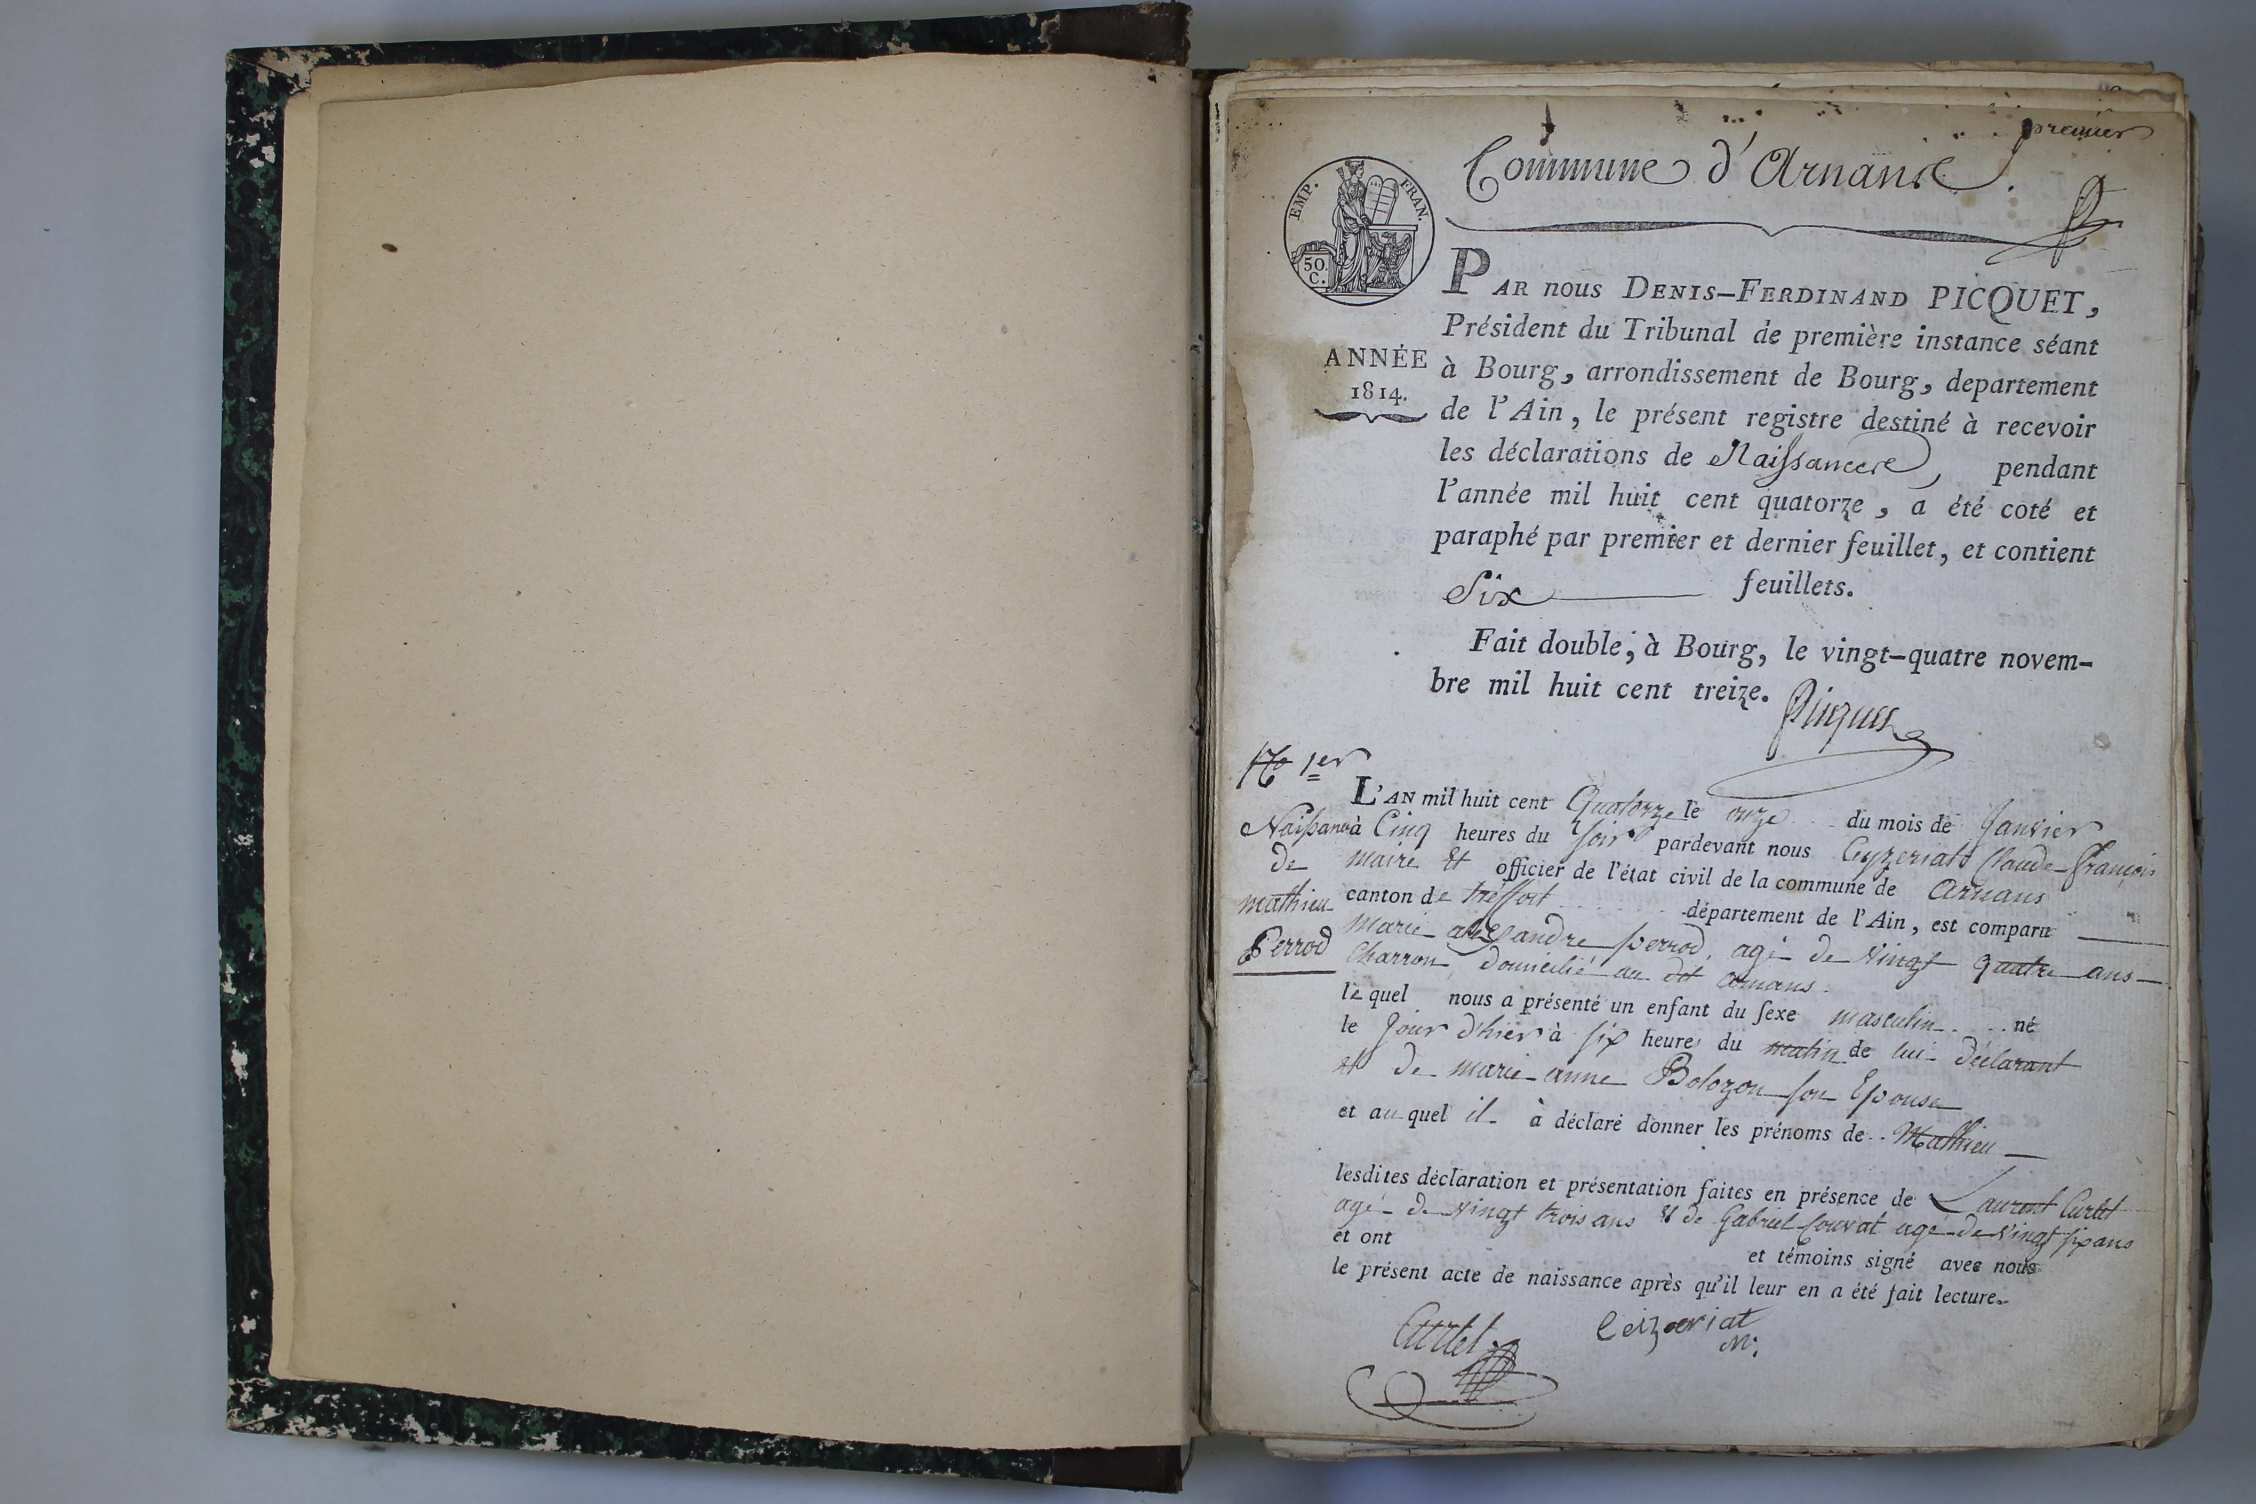 premier
Commune d'Arnans.
EMP. FRAN.
50.
C.
PAR nous DENIS-FERDINAND PICQUET,
Président du Tribunal de première instance séant
à Bourg, arrondissement de Bourg, departement
de l'Ain, le présent registre destiné à recevoir
les déclarations de Naissances, pendant
l'année mil huit cent quatorze, a été coté et
paraphé par premier et dernier feuillet, et contient
Six feuillets.
ANNÉE
1814.
Fait double, à Bourg, le vingt-quatre novem-
bre mil huit cent treize.
Picquet
No 1er
Naissance
de
mathieu
Perrod
L'AN mil huit cent Quatorze le onze du mois de Janvier
à Cinq heures du soir pardevant nous Cyzeriat Claude-françois
maire et officier de l'état civil de la commune de Arnans
canton de tréffort département de l'Ain, est comparu
marie alexandre perrod, agé de vingt quatre ans
Charron, domicilié au dit arnans.
lequel nous a présenté un enfant du sexe masculin né
le Jour d'hier à six heures du matin de lui déclarant
et de marie anne Bolozon son Epouse
et auquel il à déclaré donner les prénoms de Mathieu
lesdites déclaration et présentation faites en présence de Laurent Curtet
agé de vingt trois ans et de Gabriel Convat agé de vingt six ans
et ont et témoins signé avec nous
le présent acte de naissance après qu'il leur en a été fait lecture.
Curtet
Ceizeriat
m.